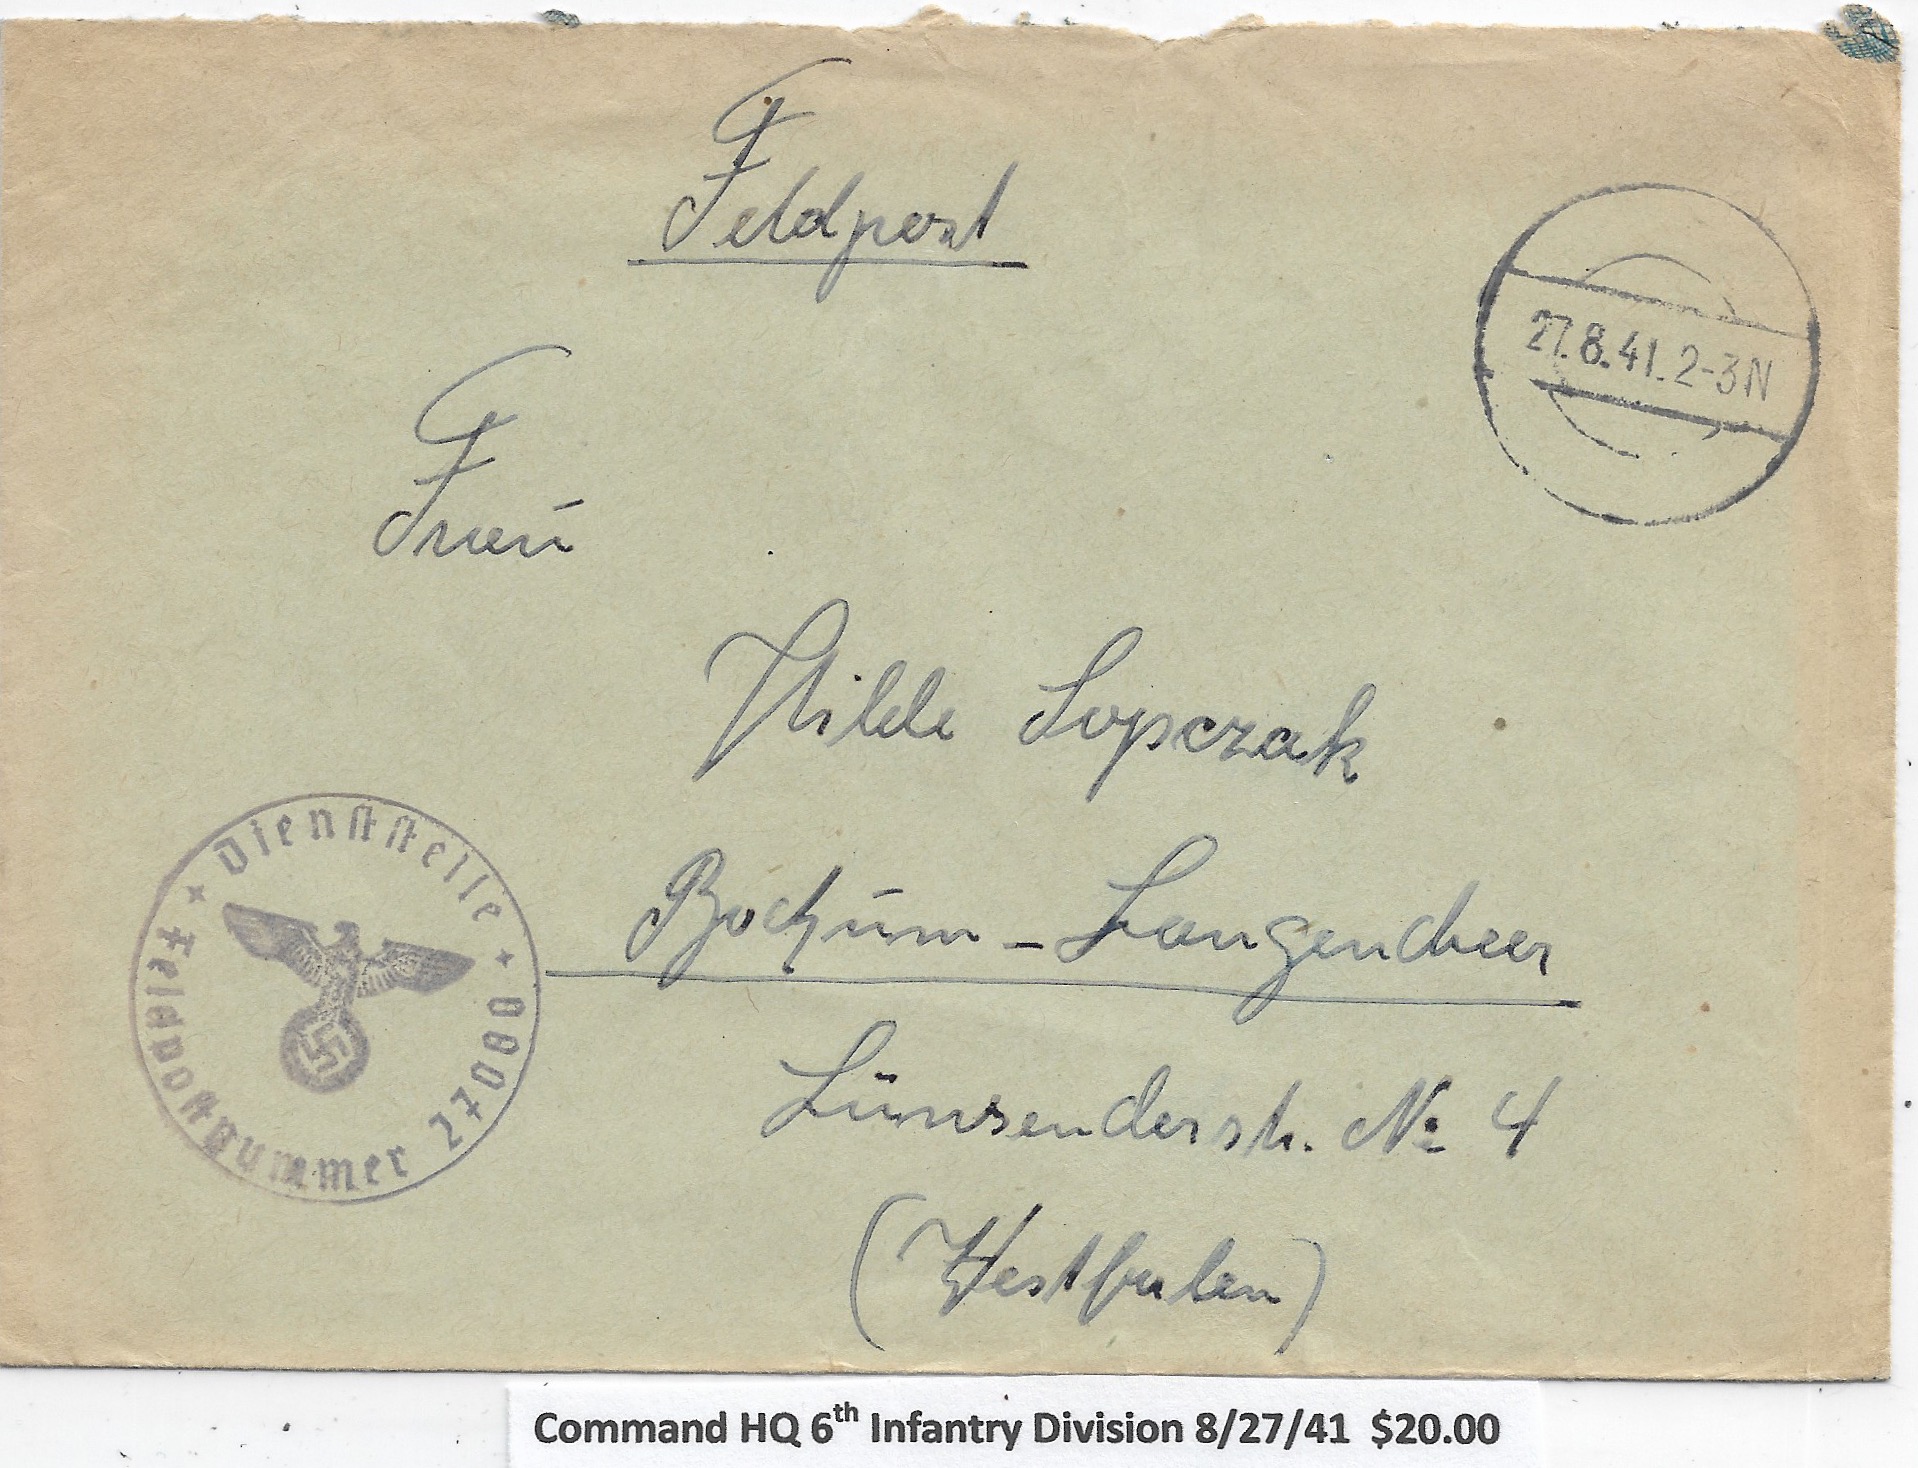 Feldpost
27.8.41.2-3N
Frau
Hilde Sopczak
Bochum - Langendreer
Dienststelle
Feldpostnummer 27000
№ 4
(Westfalen)
Command HQ 6th Infantry Division 8/27/41 $20.00